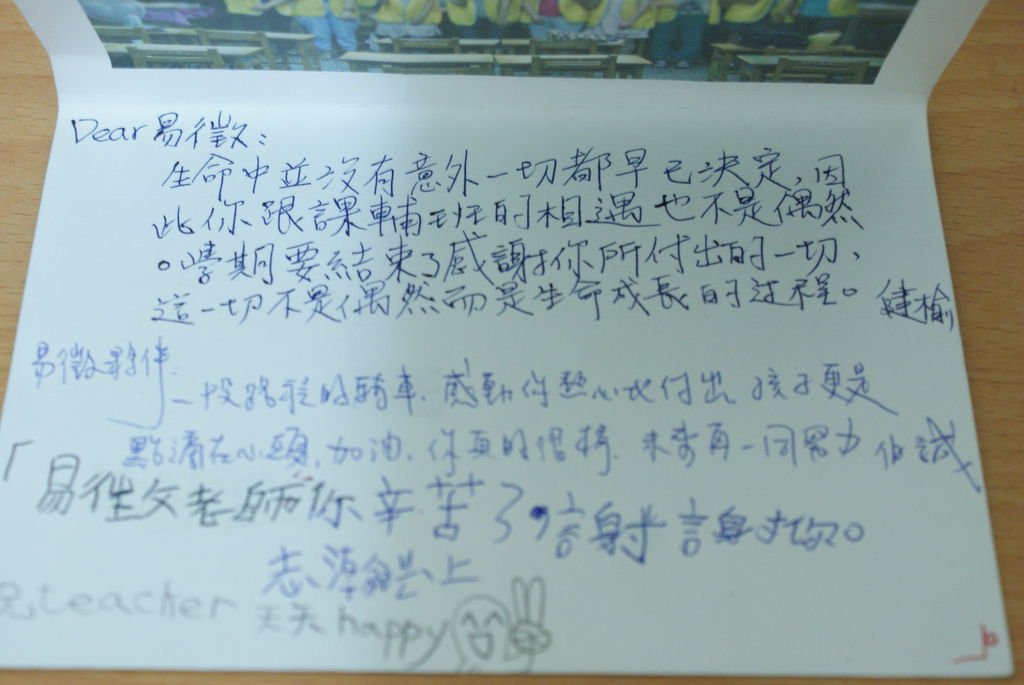 Dear 易徵:
生命中並沒有意外一切都早已決定,因
此你跟課輔班的相遇也不是偶然
。學期要結束了感謝你所付出的一切,
這一切不是偶然而是生命成長的过程。 健榆
易徵夥伴:
一段路程的騎車,感動你熱心地付出 孩子更是
點滴在心頭,加油,你真的很棒,未來再一同努力
老師你辛苦了,謝謝你。
上
teacher 天天happy